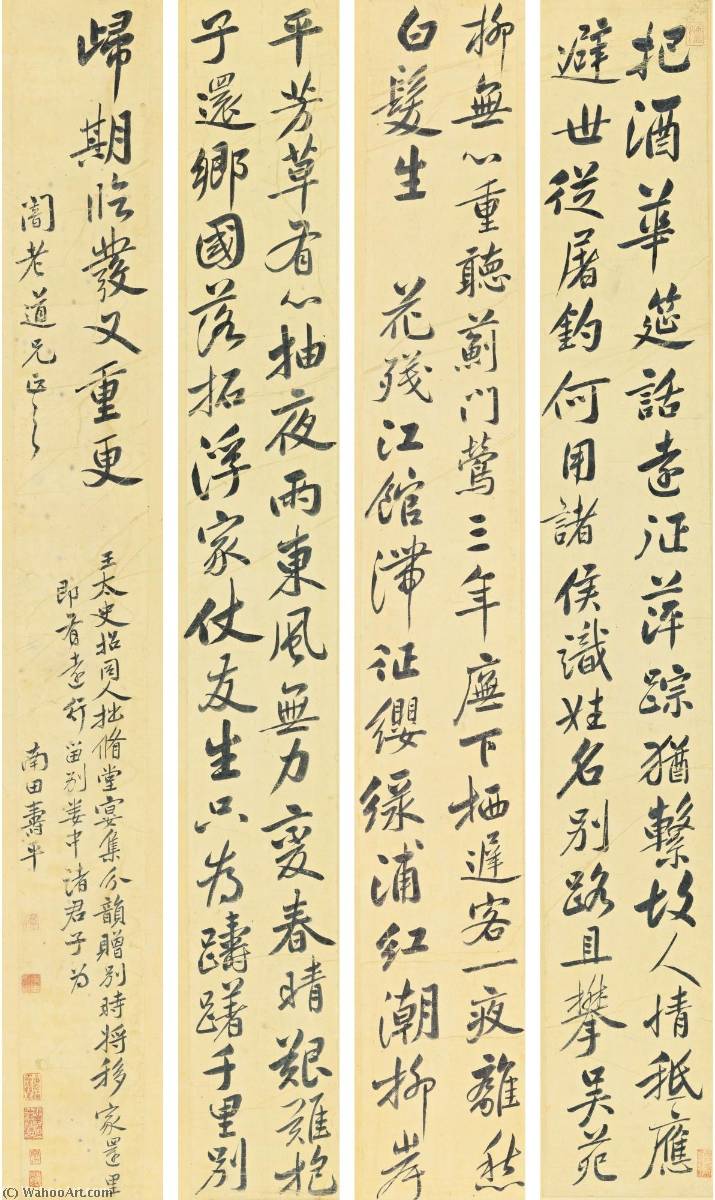 把酒華筵話遠征萍踪猶繫故人情秖應
避世從屠釣何用諸侯識姓名別路且攀吳苑
柳無心重聽薊門鶯三年廡下栖遲客一夜離愁
白髮生 花殘江館滯征纓綠浦紅潮柳岸
平芳草有心抽夜雨東風無力變春晴艱難抱
子還鄉國落拓浮家仗友生只為躊躇千里別
歸期臨發又重更
王太史招同人拙脩堂宴集分韻贈別時將移家還里
即有遠行留別婁中諸君子為
闇老道兄正之
南田壽平
© WahooArt.com